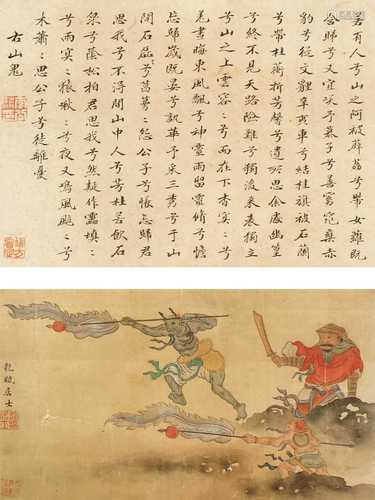 若有人兮山之阿被薜荔兮帶女蘿既
含睇兮又宜笑子慕予兮善窈窕乘赤
豹兮從文貍辛夷車兮結桂旗被石蘭
兮帶杜蘅折芳馨兮遺所思余處幽篁
兮終不見天路險難兮獨後來表獨立
兮山之上雲容〻兮而在下杳冥〻兮
羌晝晦東風飄兮神靈雨留靈脩兮憺
忘歸歲既晏兮孰華予采三秀兮于山
間石磊〻兮葛蔓〻怨公子兮悵忘歸君
思我兮不得閒山中人兮芳杜若飲石
泉兮蔭松柏君思我兮然疑作靁填〻
兮雨冥〻猨啾〻兮夜又鳴風颯〻兮
木蕭〻思公子兮徒離憂
右山鬼
居士